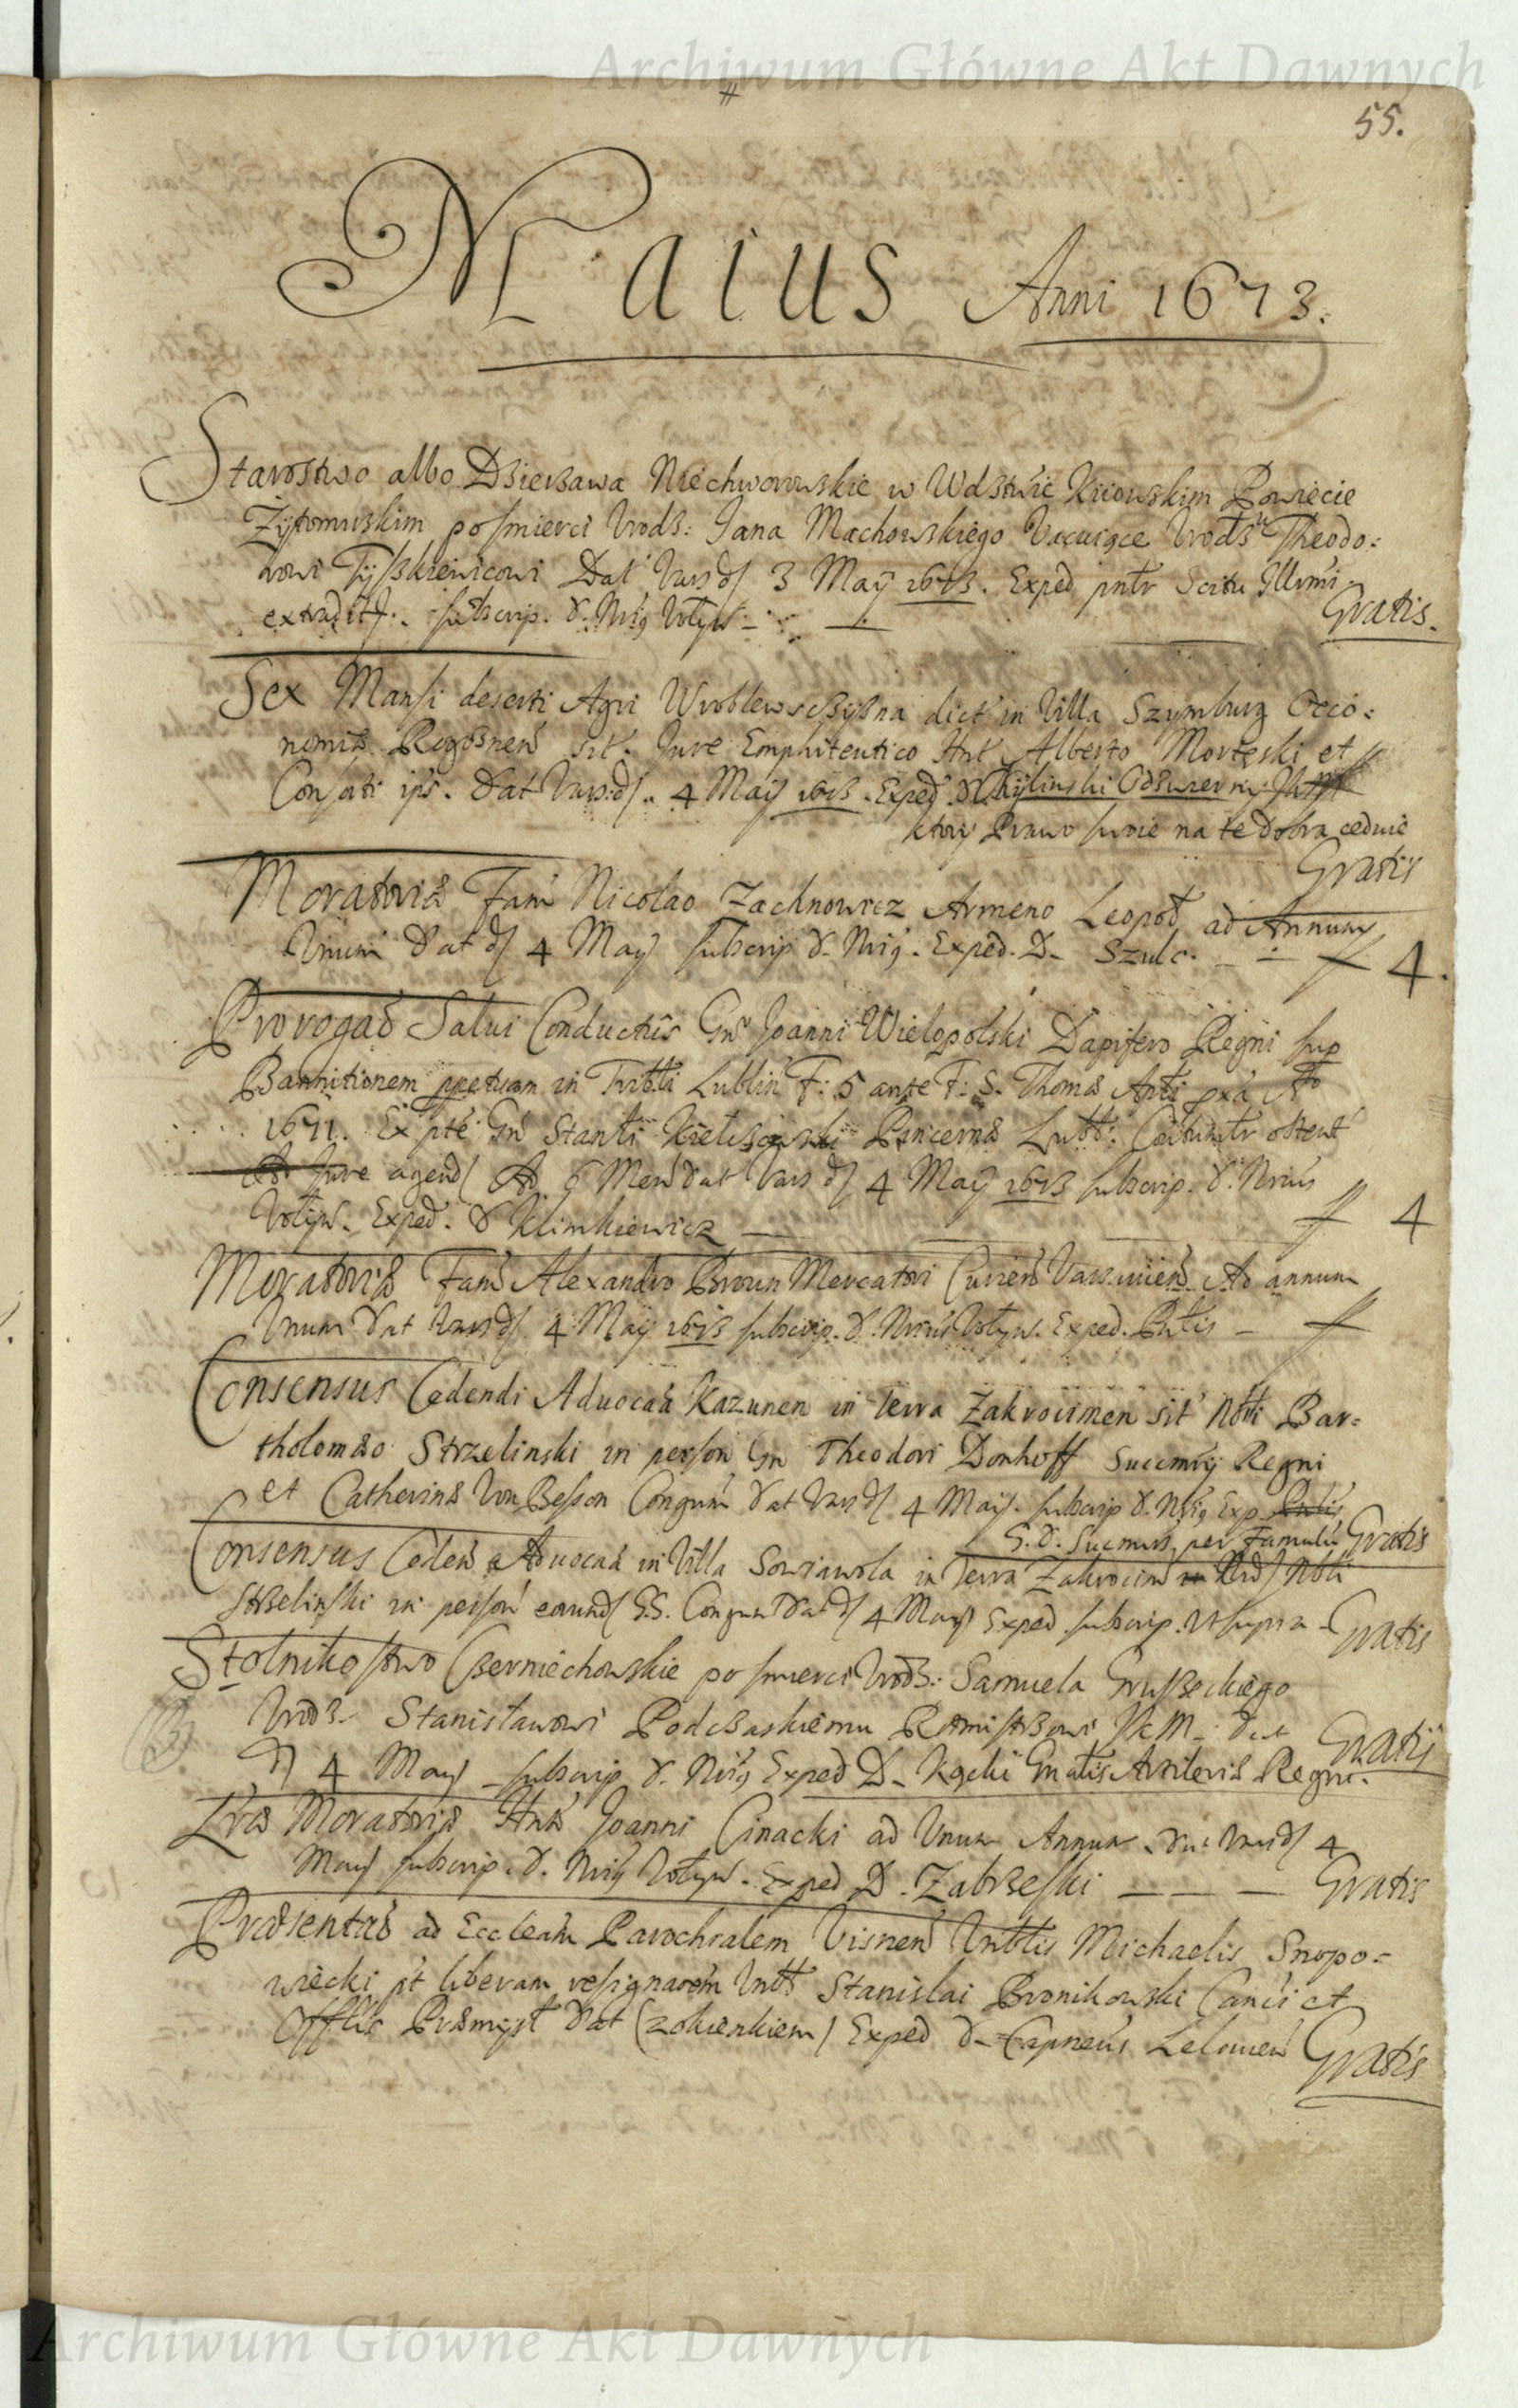 Archiwum Główne Akt Dawnych
55.
Maius Anni 1673.
Starostwo albo Dzierzawa Niechworowskie w Wdztwie Kiiowskim Powiecie
Żytomirskim po smierci Urodz: Jana Machowskiego Vacuiące Urodz Theodo:
rowi Tyszkiewicowi Dat Vars d 3 Maij 1673. Exped pntr Scitu Illmi
extradit. subscrip. D. Nrig Wotyn
Gratis.
Sex Mansi deserti Agri Wroblewsczyzna dict in Villa Szymburg Oeco:
nomia Rogosnen sit. Jure Emphiteutico Alberto Morteski et
Consorti ips. Dat Vars. d. 4 Maij 1673. Exped. D
ktory Prawo swoie na te dobra ceduie
Gratis
Moratoria Fam Nicolao Zachnowicz Armeno Leopol ad Annum
Unum Dat d 4 Maij subscrip D. Nrig. Exped. D. Szulc. f 4.
Prorogao Salui Conductus Gn Joanni Wielopolski Dapifero Regni sup
Bannitionem ppetuam in Tribli Lublin F: 5 ante F: S. Thoma Apli pxa Ao
1671. Ex pte Gn Stanli Pincerna
Jure agend Ad 6 Men Dat Vars d 4 Maij 1673 subscrip. D. Nrius
Wotyn. Exped. D Klimkiewicz f 4
Moratoria Fam Alexandro Broun Mercatori Varsavien Ad annum
Unum Dat Vars d 4 Maij 1673 subscrip. D. Nrius Wotyn. Exped. f
Consensus Cedendi Aduocaa Kazunen in Terra Zakrocimen sit Nbli Bar=
tholomao Strzelinski in person Gn Theodori Donhoff Succmrij Regni
et Catherina Von Besson Congum Dat Vars d 4 Maij. subscrip D. Nrig Exp
G. D. Succmrii per Famulu Gratis
Consensus Ceden Aduocaa in Villa Sowiawola in Terra Zakrocim Nbli
Strzelinski in person eorund G.G. Congum Dat d 4 Maij Exped subscrip. Ut supra Gratis
Stolnikostwo Czerniechowskie po smierci Urodz: Samuela Gruszeckiego
Urodz. Stanisławowi Podczaskiemu Rotmistrzowi JKM. Dat Gratis
d 4 Maij subscrip D. Nrig Exped D. Kącki Gnalis Artileria Regni.
Lras Moratoria Joanni Cinacki ad Unum Annum. Dat Vars d 4
Maij subscrip. D. Nrig Wotyn. Exped D. Zabrzeski Gratis
Prasentao ad Eccleam Parochialem Visnen Vnblis Michaelis Snopo=
wiecki pt liberam resignaoem Vnbl Stanislai Bronikowski Canci et
Offlis Pramysl Dat (z okienkiem) Exped D. Gratis
Archiwum Główne Akt Dawnych